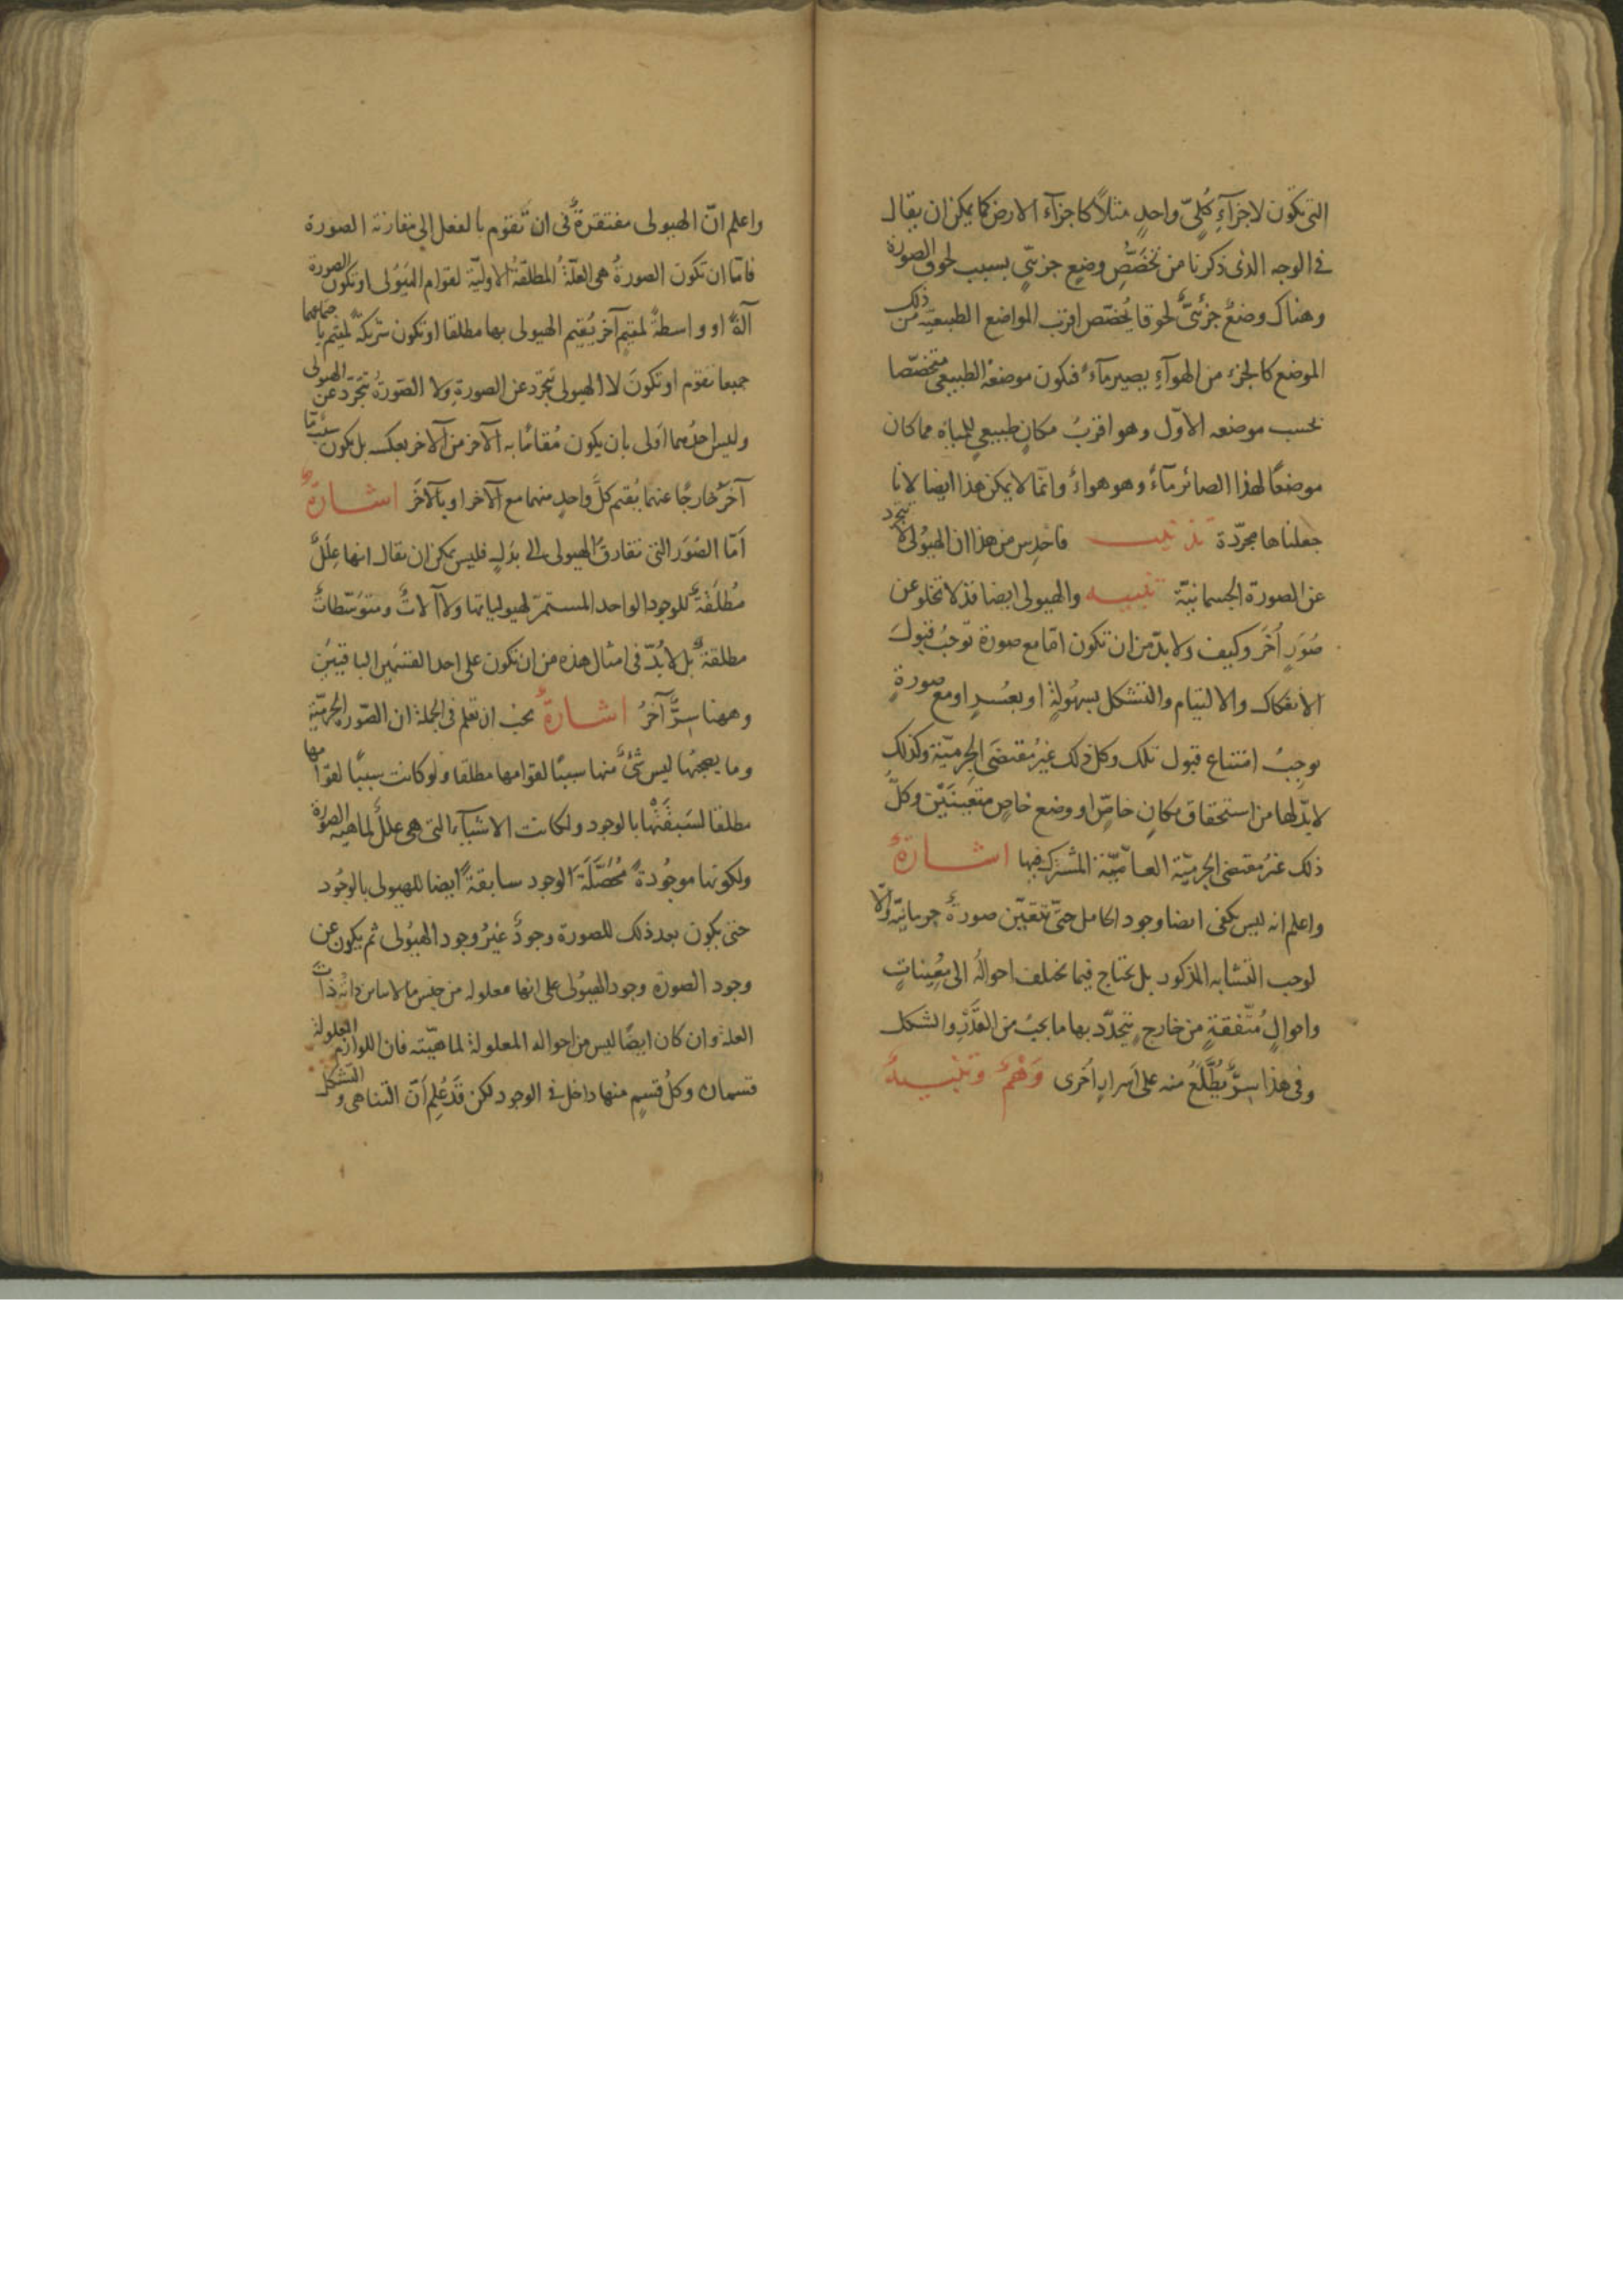 التى تكون لاجزآءِ كُلىٍّ واحدٍ مثلاً كاجزآء الارض كما يمكن ان يقال
فى الوجه الذى ذكرنا من تخصُّصِ وضعٍ جزئىّ بسبب لحوق الصورة
وهناك وضعٌ جزئىٌّ لحوقا يُخصّص اقرب المواضع الطبيعيّة من ذلك
الموضع كالجزء من الهوآءِ يصير مآءً فتكون موضعهُ الطبيعى متخصّصا
بحسب موضعه الاوّل وهو اقربُ مكانٍ طبيعىٍ للمياه مما كان
موضعًا لهذا الصائر مآءً وهو هواءٌ وانّما لا يمكن هذا ايضا لانا
جعلناها مجرّدة تذنيب فاحدِس من هذا ان الهيُولى لا تتجرّد
عن الصورة الجسمانيّة تنبيه والهيولى ايضا قد لا تخلو عن
صُوَرٍ اُخَر وكيف ولا بدّ من ان تكون امّا مع صورة توجبُ قبولَ
الانفكاك والالتيام والتشكل بسهُولةٍ او بعُسرٍ او مع صورةٍ
توجِبُ امتناع قبول تلك وكل ذلك غيرُ مقتضَى الجِرميّة وكذلك
لا بدّ لها من استحقاق مكانٍ خاصٍّ او وضع خاصٍ متعيّنَيْن وكلّ
ذلك غيرُ مقتضى الجرميّة العامّيّة المشترك فيها اشارةٌ
واعلم انه ليس يكفى ايضا وجود الحامل حتّى تتعيّن صورةٌ جرمانيّة والّا
لوجب التشابه المذكور بل يحتاج فيما تختلف احوالهُ الى مُعيِّناتٍ
واحوالٍ مُتّفقةٍ من خارجٍ يتجدّد بها ما يجبُ من القَدْرِ والشكل
وفى هذا سِرٌّ يُطَّلَعُ منه على اَسرارٍ اُخرى وَهْمٌ وتنبيهٌ
واعلم انّ الهيولى مفتقرةٌ فى ان تقوم بالفعل الى مقارنة الصورة
فامّا ان تكون الصورةُ هى العلّةُ المطلقةُ الاوليّة لقوام الهيُولى او تكون الصورة
آلةً او واسطةً لمقيمٍ آخر يُقيم الهيولى بها مطلقا او تكون شريكةً لمقيم باجتماعهما
جميعا تقوم او تكونَ لا الهيولى تتجرّد عن الصورةِ ولا الصّورةُ تتجَرّد عن الهيولى
وليس احدُهما اَولى بان يكون مُقامًا به الآخر من الآخر بعكسه بل يكون سببٌ ما
آخرُ خارجًا عنهما يُقيم كلَّ واحدٍ منهما مع الآخر او بالآخَرَ اشارةٌ
اَمّا الصُوَر التى تفارقُ الهيولى الى بدَلٍ فليس يمكن ان يقال انها عِلَلٌ
مُطلَقةٌ للوجود الواحد المستمرّ لهيولياتها ولا آلاتٌ ومتوَسّطاتٌ
مطلقةٌ بل لا بُدّ فى امثال هذه من ان تكون على احد القسْمَيْن الباقيَيْن
وههنا سِرٌّ آخَرُ اشارةٌ يجبُ ان تعلم فى الجملة ان الصّور الجرميّة
وما يصحبُها ليس شَىءٌ منها سببًا لقوامها مطلقا ولو كانت سببًا لقوامها
مطلقا لسَبقَتْها بالوجود ولكانت الاشيآءُ التى هى عللٌ لماهية الصورة
ولكونها موجُودةً مُحَصَّلَةَ الوجود سابقةً ايضا للهيولى بالوجُود
حتى يكون بعد ذلك للصورة وجودٌ غيرُ وجود الهيُولى ثم يكون عن
وجود الصورة وجود الهيُولى على انها معلوله من جنس ما لا يباين ذاتُه ذاتَ
العلة وان كان ايضًا ليس من احواله المعلولة لماهيّته فان اللوازم المعلولة
قسمان وكلُ قسمٍ منها داخل فى الوجود لكن قَدْ عُلِم اَنّ التناهى والتشكل